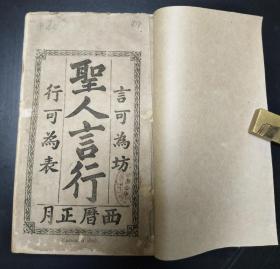 言可為坊
聖人言行
行可為表
西曆正月